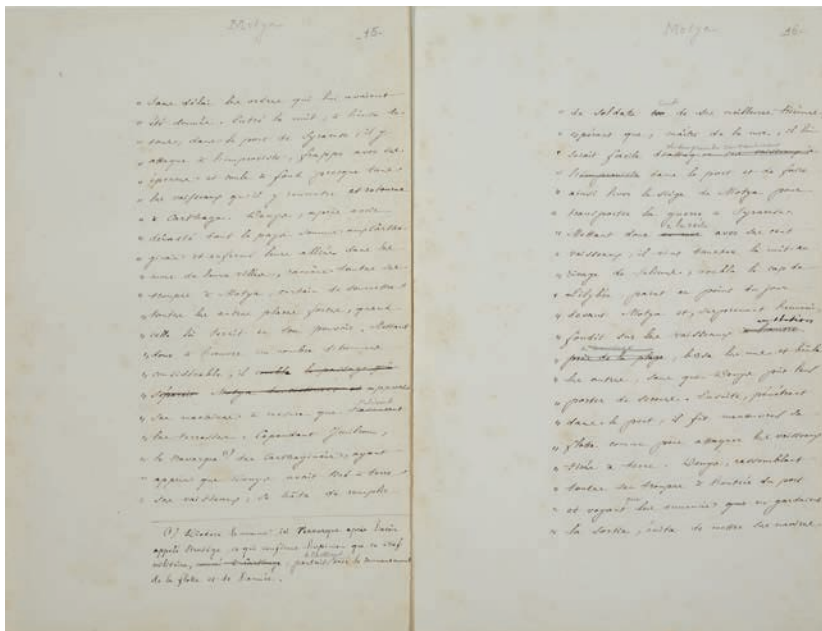 Motya
15.
" sans délai les ordres qui lui avaient
" été donnés. Entré la nuit, à l'insu de
" tous, dans le port de Syracuse, il y
" attaque à l'improviste, frappe avec
" éperons et coule à fond presque tous
" les vaisseaux qu'il y rencontre et retourne
" à Carthage. Denys, après avoir
" dévasté tout le pays soumis aux Cartha-
" ginois et enfermé leurs alliés dans les
" murs de leurs villes, ramène toutes ses
" troupes à Motya, certain de soumettre
" toutes les autres places fortes, quand
" celle là serait en son pouvoir. Mettant
" donc à l'œuvre un nombre d'hommes
" considérable, il comble le passage qui
" séparait Motya et approche
" ses machines à mesure que
" les terrasses. Cependant Imilcon,
" le Navarque (1) des Carthaginois, ayant
" appris que Denys avait mis à terre
" ses vaisseaux, se hâta de remplir
(1)
appelé Stratège, ce qui confirme l'opinion que ce chef
militaire, partageait le commandement
de la flotte et de l'armée.
Motya
16.
" de soldats cent de ses meilleures trirèmes
" espérant que, maître de la mer, il lui
" serait facile
" dans le port et de faire
" ainsi lever le siège de Motya pour
" transporter la guerre à Syracuse.
" Mettant donc à la voile avec ses cent
" vaisseaux, il vient toucher la nuit au
" rivage de Sélinonte, double le cap de
" Lilybée, parut au point du jour
" devant Motya et, surprenant l'ennemi,
" fondit sur les vaisseaux en station
" près de la plage, brisa les uns et brûla
" les autres, sans que Denys pût leur
" porter de secours. Ensuite, pénétrant
" dans le port, il fit manœuvrer sa
" flotte comme pour attaquer les vaisseaux
" tirés à terre. Denys, rassemblant
" toutes ses troupes à l'entrée du port
" et voyant que les ennemis en gardaient
" la sortie, évita de mettre ses navires